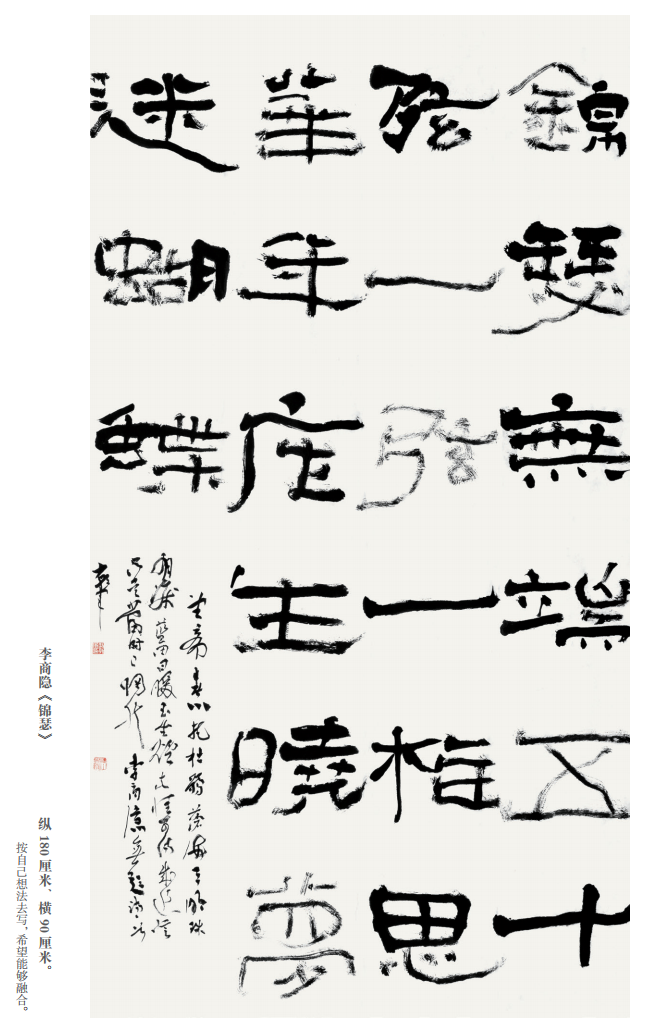 錦瑟無端五十
弦一弦一柱思
華年庄生曉夢
迷蝴蝶
望帝春心托杜鵑滄海月明珠
有淚藍田日暖玉生煙此情可待成追憶
只是當時已惘然 李商隱無題詩
李商隐《锦瑟》 纵 180 厘米、横 90 厘米。
按自己想法去写，希望能够融合。